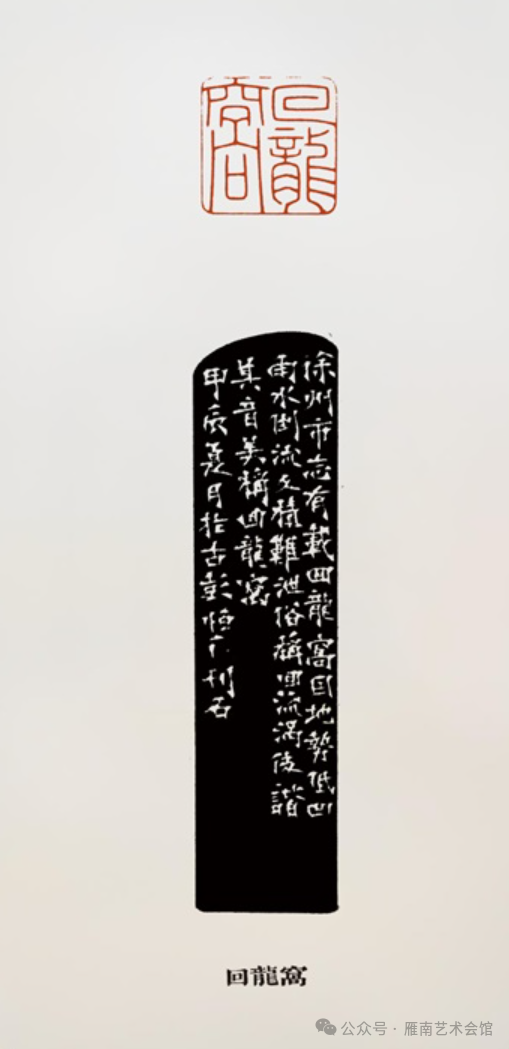 回龍
窩
徐州市志有載回龍窩因地勢低凹
雨水倒流久積難泄俗稱回流渦後諧
其音美稱回龍窩
甲辰夏月於古彭刊石
回龍窩
公众号·雁南艺术会馆